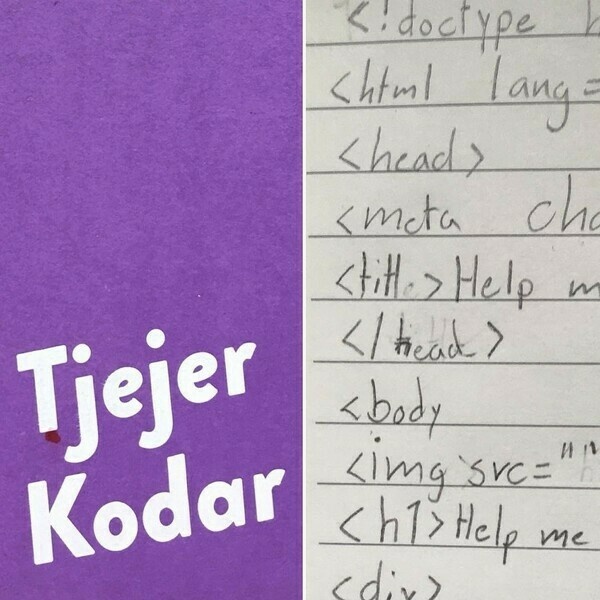 Tjejer
Kodar
<!doctype h
<html lang=
<head>
<meta cha
<title>Help m
</head>
<body
<img src=""
<h1>Help me
<div>